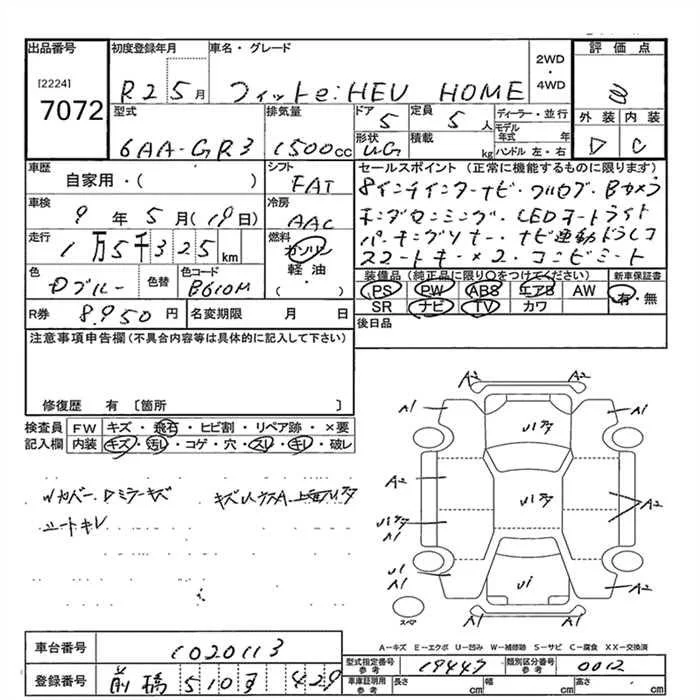 出品番号 初度登録年月 車名・グレード 2WD・4WD 評価点
[2224] 7072
R2 5月 フィットe:HEV HOME
B
外装 内装
D C
型式 排気量 ドア 5 定員 5人 ディーラー・並行
モデル年式 年
6AA-GR3 1500cc 形状 積載 kg ハンドル 左・右
車歴 シフト セールスポイント (正常に機能するものに限ります)
自家用・( ) FAT
8インチインターナビ・フルセグ・Bカメラ
車検 9年5月(19日) 冷房 AAC
ホンダセンシング・LEDヘッドライト
走行 1万5千325km 燃料 ガソリン
パーキングソナー・ナビ連動ドラレコ
軽油・( )
スマートキー×2・コンビシート
色 Dブルー 色替 色コード B610M
装備品 (純正品に限り〇をつけてください) 新車保証書
PS PW ABS エアB AW 有・無
SR ナビ TV カワ
R券 8,950円 名変期限 月 日 後日品
注意事項申告欄(不具合内容等は具体的に記入して下さい)
修復歴 有 〔箇所 〕
検査員記入欄 FW キズ・飛石・ヒビ割・リペア跡・×要
内装 キズ・汚レ・コゲ・穴・スレ・キレ・破レ
Wカバー・Dミラーキズ
シートキレ
A2 A2
A1 A1
A2 A2
A1
U1 A1 U1 A2
A1 A1
スペア
A-キズ E-エクボ U-凹み W-補修跡 S-サビ C-腐食 XX-交換済
車台番号 1020113
型式指定番号 参考 19447 類別区分番号 参考 0012
登録番号 前橋 510 す 429
車庫証明用 参考 長さ cm 幅 cm 高さ cm